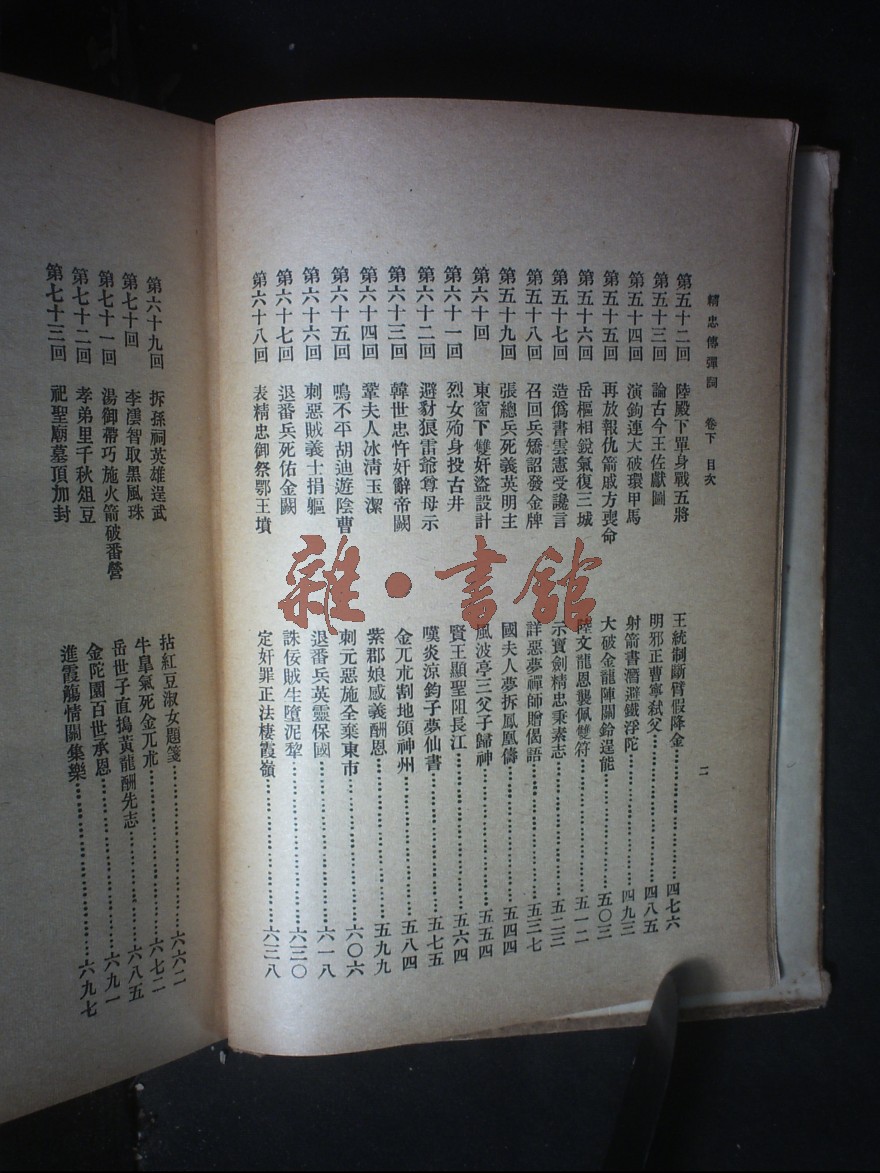 精忠傳彈詞 卷下 目次 二
第五十二回 陸殿下單身戰五將 王統制斷臂假降金 四七六
第五十三回 論古今王佐獻圖 明邪正曹寧弒父 四八五
第五十四回 演鉤連大破環甲馬 射箭書潛避鐵浮陀 四九三
第五十五回 再放報仇箭戚方喪命 大破金龍陣關鈴逞能 五〇三
第五十六回 岳樞相銳氣復三城 陸文龍恩襲佩雙符 五一二
第五十七回 造僞書雲憲受讒言 示寶劍精忠秉素志 五二三
第五十八回 召回兵矯詔發金牌 詳惡夢禪師贈偈語 五三七
第五十九回 張總兵死義英明主 國夫人夢拆鳳凰儔 五四四
第六十回 東窗下雙奸盜設計 風波亭三父子歸神 五五四
第六十一回 烈女殉身投古井 賢王顯聖阻長江 五六四
第六十二回 避豺狼雷爺尊母示 嘆炎涼鈞子夢仙書 五七五
第六十三回 韓世忠忤奸辭帝闕 金兀朮割地領神州 五八四
第六十四回 鞏夫人冰淸玉潔 紫郡娘感義酬恩 五九九
第六十五回 鳴不平胡迪遊陰曹 刺元惡施全棄東市 六〇六
第六十六回 刺惡賊義士捐軀 退番兵英靈保國 六一八
第六十七回 退番兵死佑金闕 誅佞賊生墮泥犂 六三〇
第六十八回 表精忠御祭鄂王墳 定奸罪正法棲霞嶺 六三八
第六十九回 拆孫祠英雄逞武 拈紅豆淑女題箋 六六二
第七十回 李澐智取黑風珠 牛臯氣死金兀朮 六七二
第七十一回 湯御帶巧施火箭破番營 岳世子直搗黃龍酬先志 六八五
第七十二回 孝弟里千秋俎豆 金陀園百世承恩 六九一
第七十三回 祀聖廟墓頂加封 進霞觴情關集樂 六九七
雜·書館